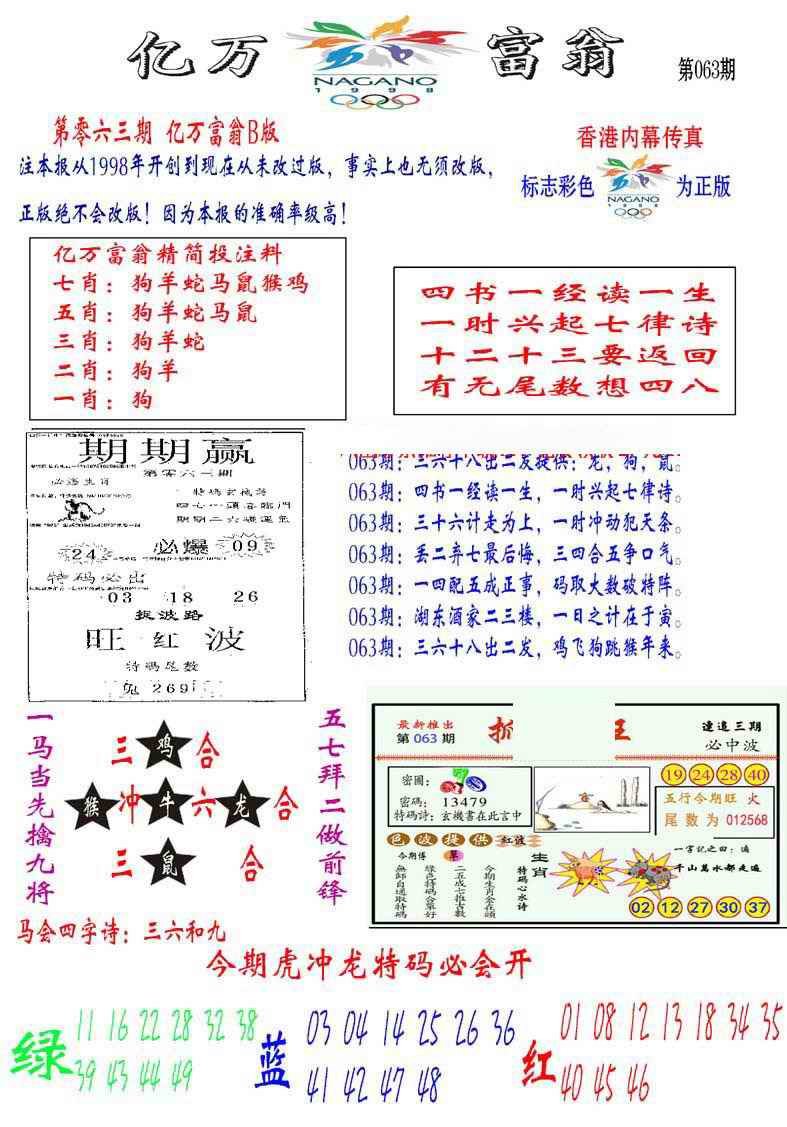 亿万富翁
NAGANO
1998
第063期
第零六三期 亿万富翁B版
注本报从1998年开创到现在从未改过版，事实上也无须改版，
正版绝不会改版！因为本报的准确率级高！
香港内幕传真
标志彩色
NAGANO
1998
为正版
亿万富翁精简投注料
七肖：狗羊蛇马鼠猴鸡
五肖：狗羊蛇马鼠
三肖：狗羊蛇
二肖：狗羊
一肖：狗
四书一经读一生
一时兴起七律诗
十二十三要返回
有无尾数想四八
期期赢
第零六三期
必爆
24
09
特码必出
03 18 26
捉波路
旺红波
特码尾数
兔269
063期：三六十八出二发提供：龙，狗，鼠。
063期：四书一经读一生，一时兴起七律诗。
063期：三十六计走为上，一时冲动犯天条。
063期：丢二弃七最后悔，三四合五争口气。
063期：一四配五成正事，码取大数破特阵。
063期：湖东酒家二三楼，一日之计在于寅。
063期：三六十八出二发，鸡飞狗跳猴年来。
一马当先擒九将
三鸡合
猴冲牛六龙合
三鼠合
五七拜二做前锋
马会四字诗：三六和九
最新推出
第063期
连追三期
必中波
密圖：
密碼：13479
特碼詩：玄機書在此言中
19 24 28 40
五行今期旺 火
尾数为 012568
色波提供 红波
今期博
生肖
特碼心水诗
一字记之曰：遍
千山萬水都走遍
02 12 27 30 37
今期虎冲龙特码必会开
绿
11 16 22 28 32 38
39 43 44 49
蓝
03 04 14 25 26 36
41 42 47 48
红
01 08 12 13 18 34 35
40 45 46